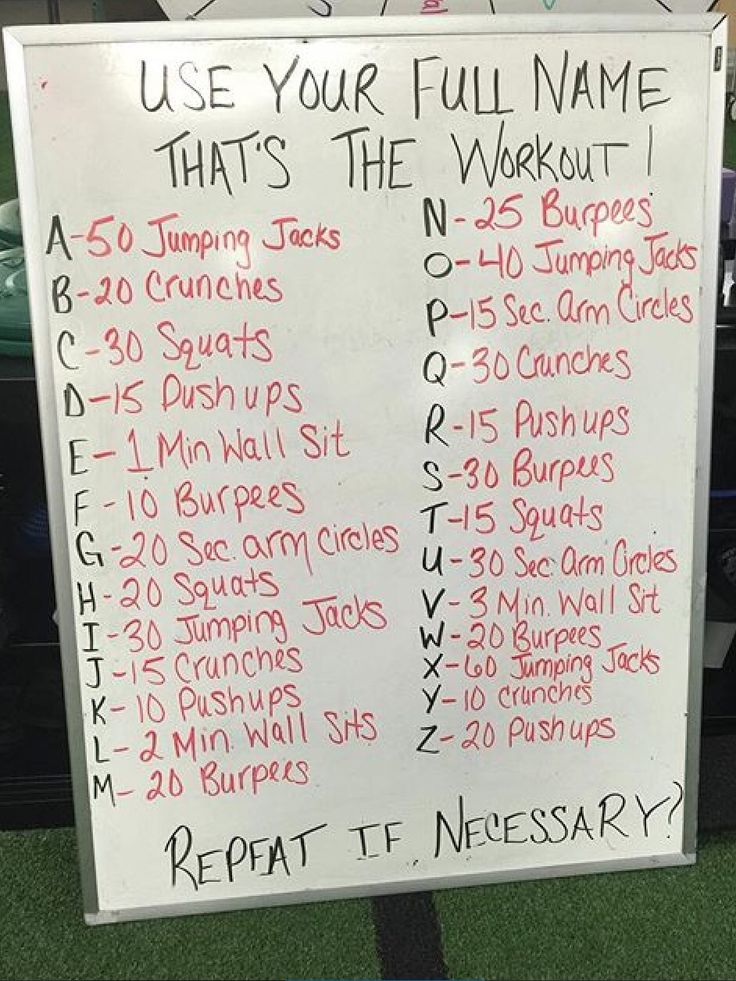 USE YOUR FULL NAME
THAT'S THE WORKOUT!
A-50 Jumping Jacks
B-20 Crunches
C-30 Squats
D-15 Pushups
E-1 Min Wall Sit
F-10 Burpees
G-20 Sec. arm circles
H-20 Squats
I-30 Jumping Jacks
J-15 Crunches
K-10 Pushups
L-2 Min. Wall Sits
M-20 Burpees
N-25 Burpees
O-40 Jumping Jacks
P-15 Sec. Arm Circles
Q-30 Crunches
R-15 Pushups
S-30 Burpees
T-15 Squats
U-30 Sec. Arm Circles
V-3 Min. Wall Sit
W-20 Burpees
X-60 Jumping Jacks
Y-10 crunches
Z-20 Pushups
REPEAT IF NECESSARY?